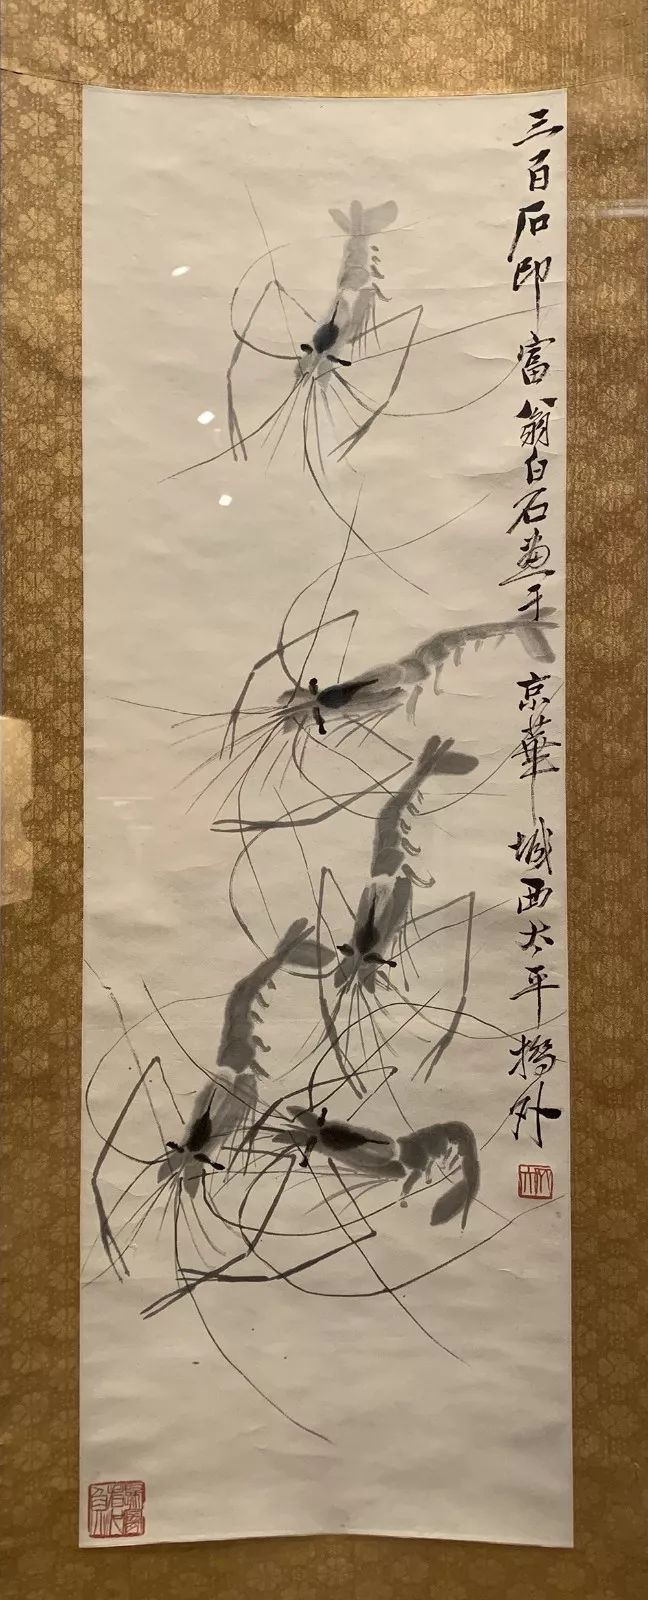 三百石印富翁白石畫于京華城西太平橋外